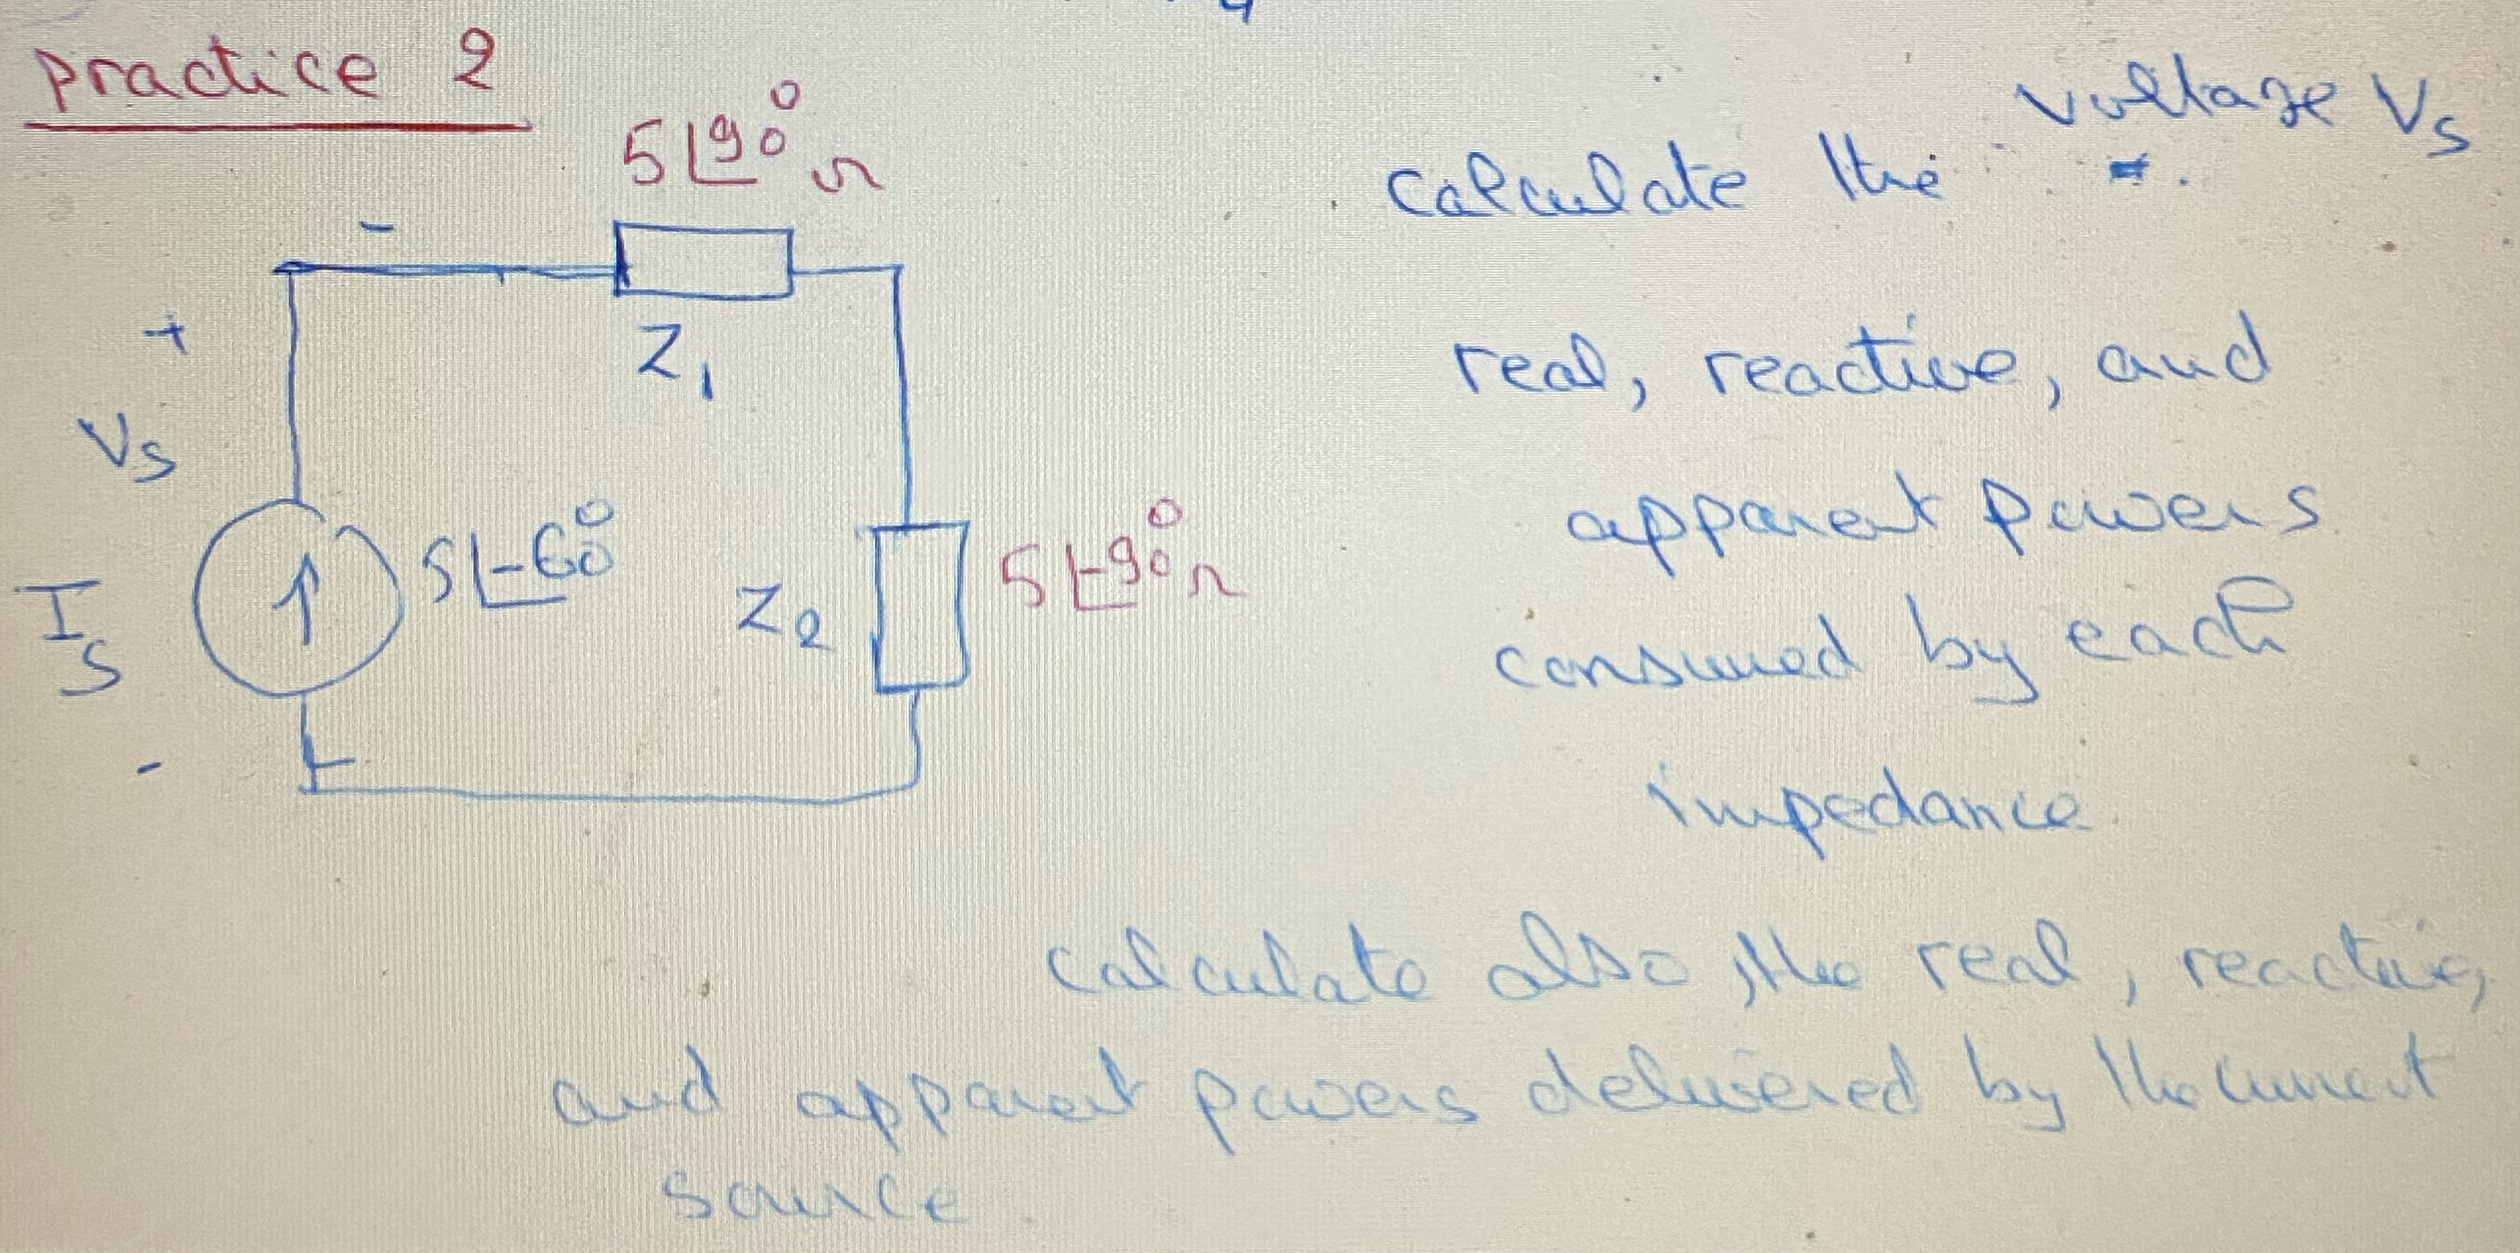 practice 2
5∠90° Ω
calculate the voltage Vs
-
+
Z1
real, reactive, and
Vs
apparent powers
5∠-60°
5∠-90° Ω
Is
Z2
consumed by each
-
impedance
calculate also, the real, reactive,
and apparent powers delivered by the current
source.